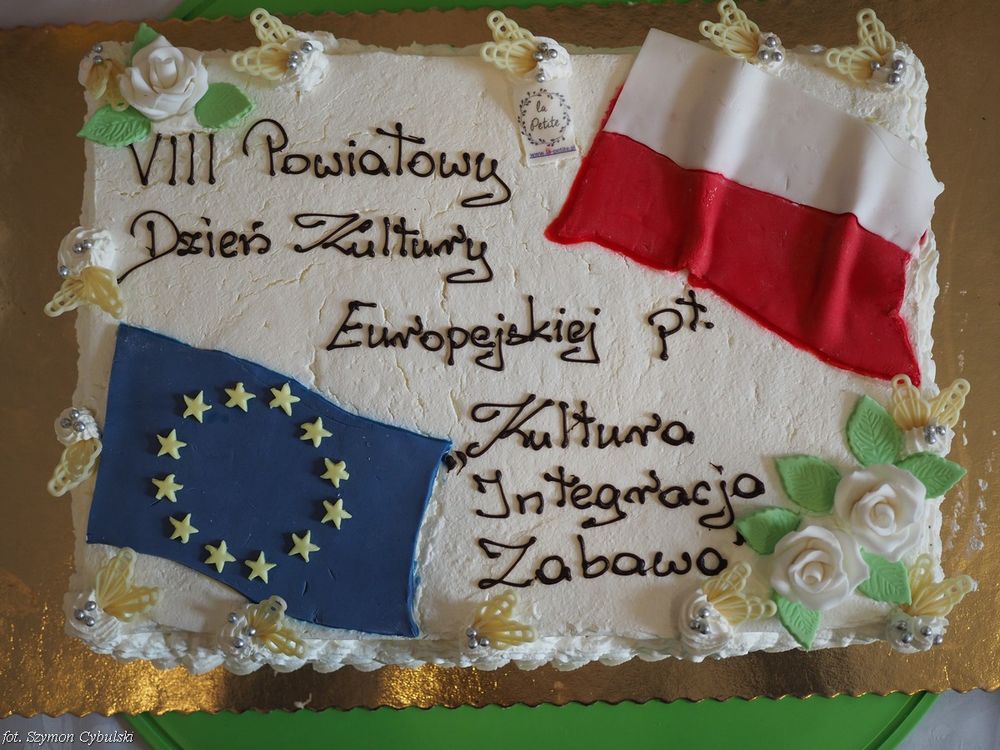 VIII Powiatowy
Dzień Kultury
Europejskiej pt.
„Kultura
Integracja
Zabawa"
la
Petite
www.la-petite.pl
fot. Szymon Cybulski